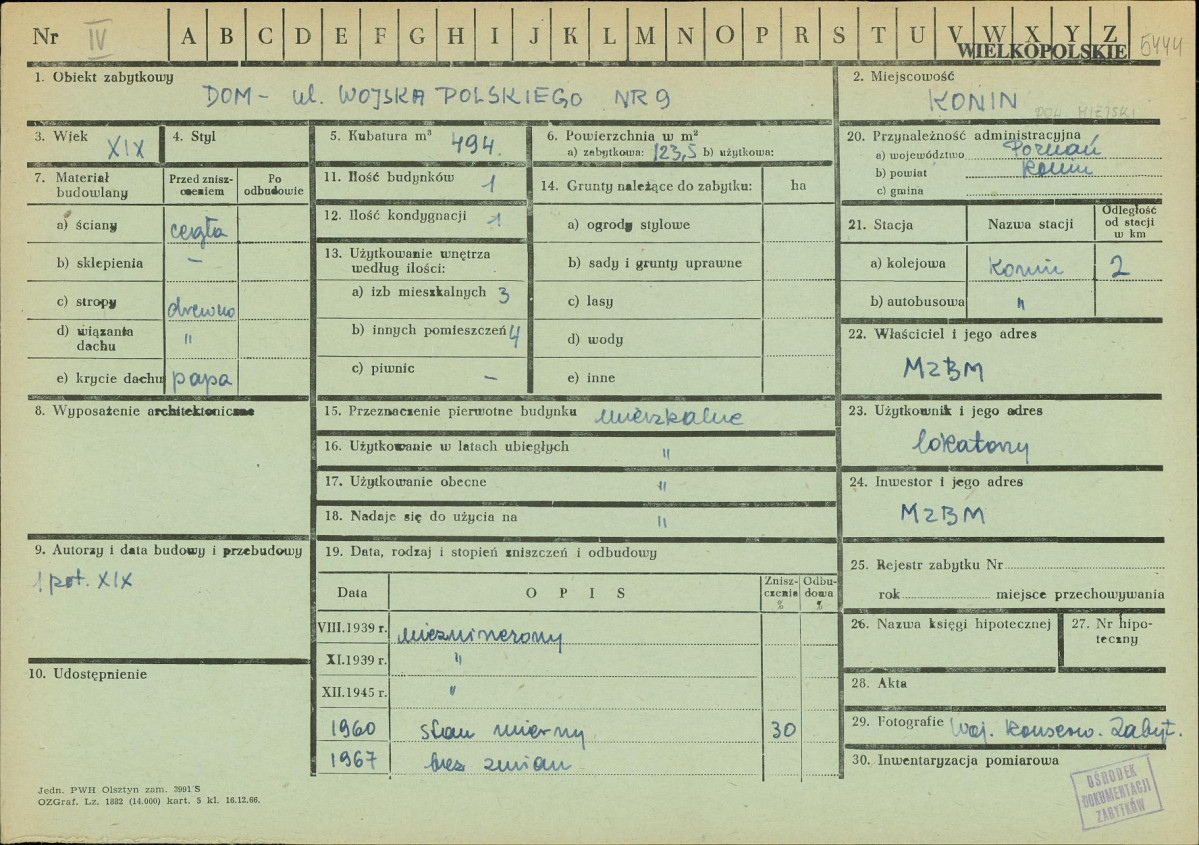 Nr IV A B C D E F G H I J K L M N O P R S T U V W X Y Z 5444
WIELKOPOLSKIE
1. Obiekt zabytkowy
DOM - ul. WOJSKA POLSKIEGO NR 9
2. Miejscowość
KONIN
3. Wiek XIX
4. Styl
5. Kubatura m³ 494.
6. Powierzchnia w m²
a) zabytkowa: 123,5 b) użytkowa:
7. Materiał budowlany
Przed znisz-
czeniem
Po
odbudowie
a) ściany cegła
b) sklepienia –
c) stropy drewno
d) wiązania
dachu "
e) krycie dachu papa
11. Ilość budynków 1
12. Ilość kondygnacji 1
13. Użytkowanie wnętrza
według ilości:
a) izb mieszkalnych 3
b) innych pomieszczeń 4
c) piwnic –
14. Grunty należące do zabytku: ha
a) ogrody stylowe
b) sady i grunty uprawne
c) lasy
d) wody
e) inne
20. Przynależność administracyjna
a) województwo Poznań
b) powiat Konin
c) gmina
21. Stacja Nazwa stacji
Odległość
od stacji
w km
a) kolejowa Konin 2
b) autobusowa "
22. Właściciel i jego adres
MZBM
8. Wyposażenie architektoniczne
15. Przeznaczenie pierwotne budynku mieszkalne
16. Użytkowanie w latach ubiegłych "
17. Użytkowanie obecne "
18. Nadaje się do użycia na "
23. Użytkownik i jego adres
lokatorzy
24. Inwestor i jego adres
MZBM
9. Autorzy i data budowy i przebudowy
1 poł. XIX
10. Udostępnienie
19. Data, rodzaj i stopień zniszczeń i odbudowy
Data O P I S
Znisz-
czenie
%
Odbu-
dowa
%
VIII.1939 r. niezniszczony
XI.1939 r. "
XII.1945 r. "
1960 stan mierny 30
1967 bez zmian
25. Rejestr zabytku Nr
rok miejsce przechowywania
26. Nazwa księgi hipotecznej
27. Nr hipo-
teczny
28. Akta
29. Fotografie Woj. Konserw. Zabyt.
30. Inwentaryzacja pomiarowa
OŚRODEK
DOKUMENTACJI
ZABYTKÓW
Jedn. PWH Olsztyn zam. 3991/S
OZGraf. Lz. 1882 (14.000) kart. 5 kl. 16.12.66.